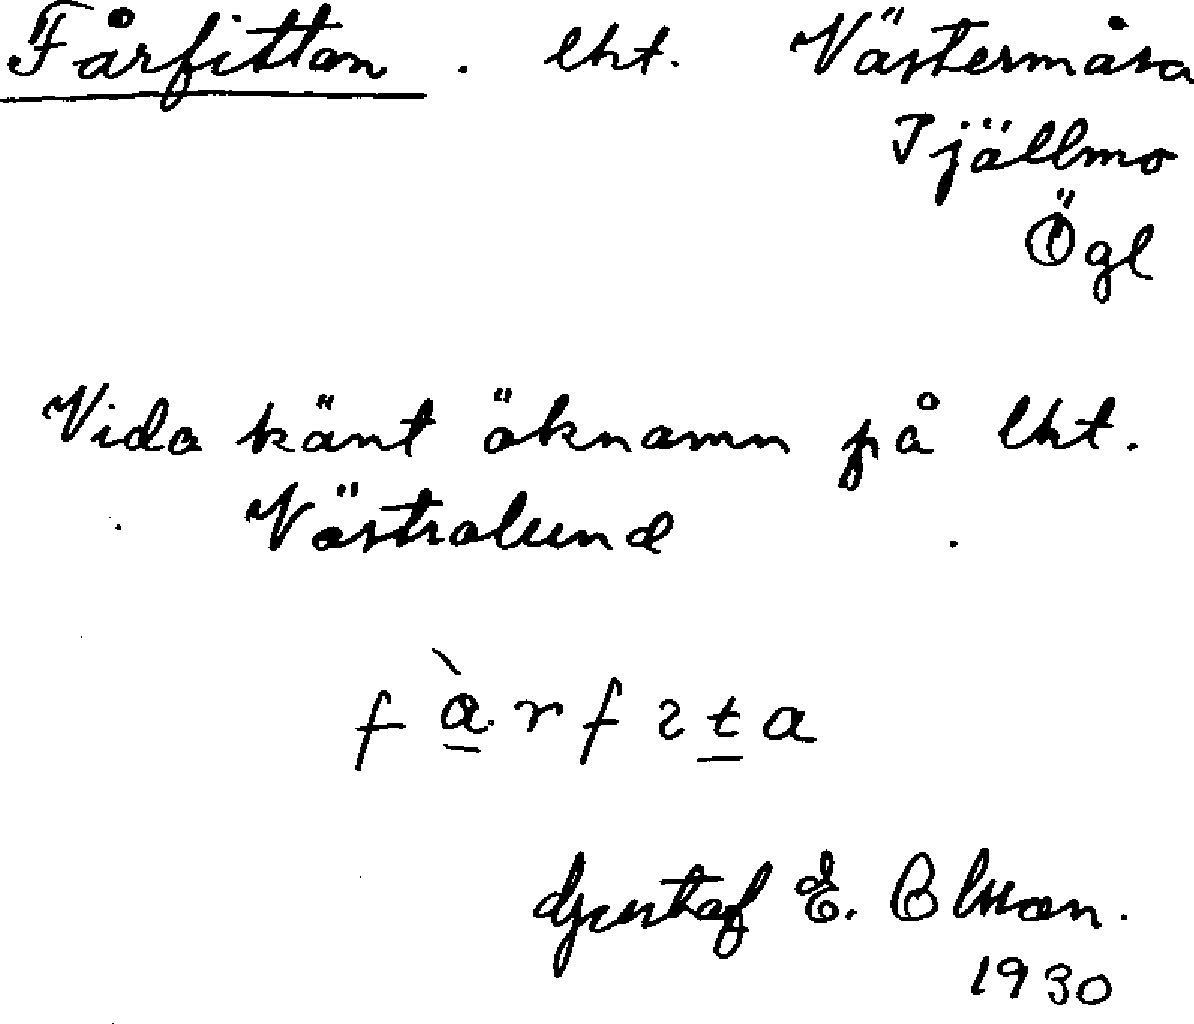 Fårfittan. lht. Västermåsa
Tjällmo
Ögl
Vida känt öknamn på lht.
Västralund
fàrfıta
Gustaf E. Olsson.
1930